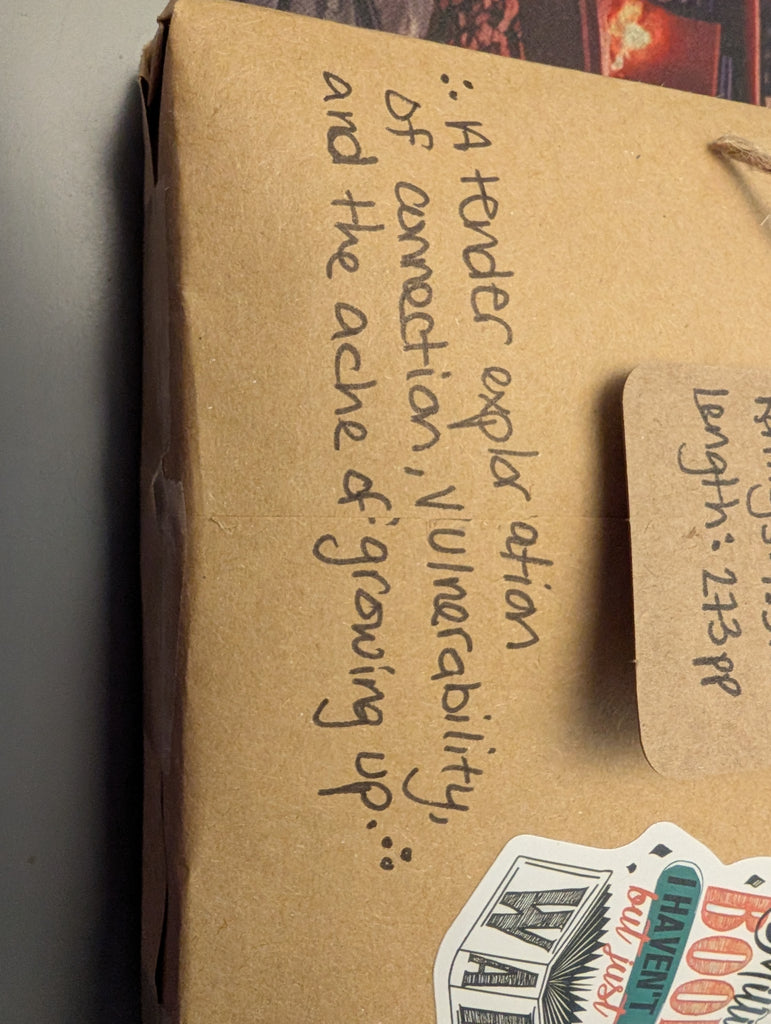 ∴ A tender exploration
of connection, vulnerability,
and the ache of growing up. ∴
Length: 273pp
BOO
I HAVEN'T
but just
WA